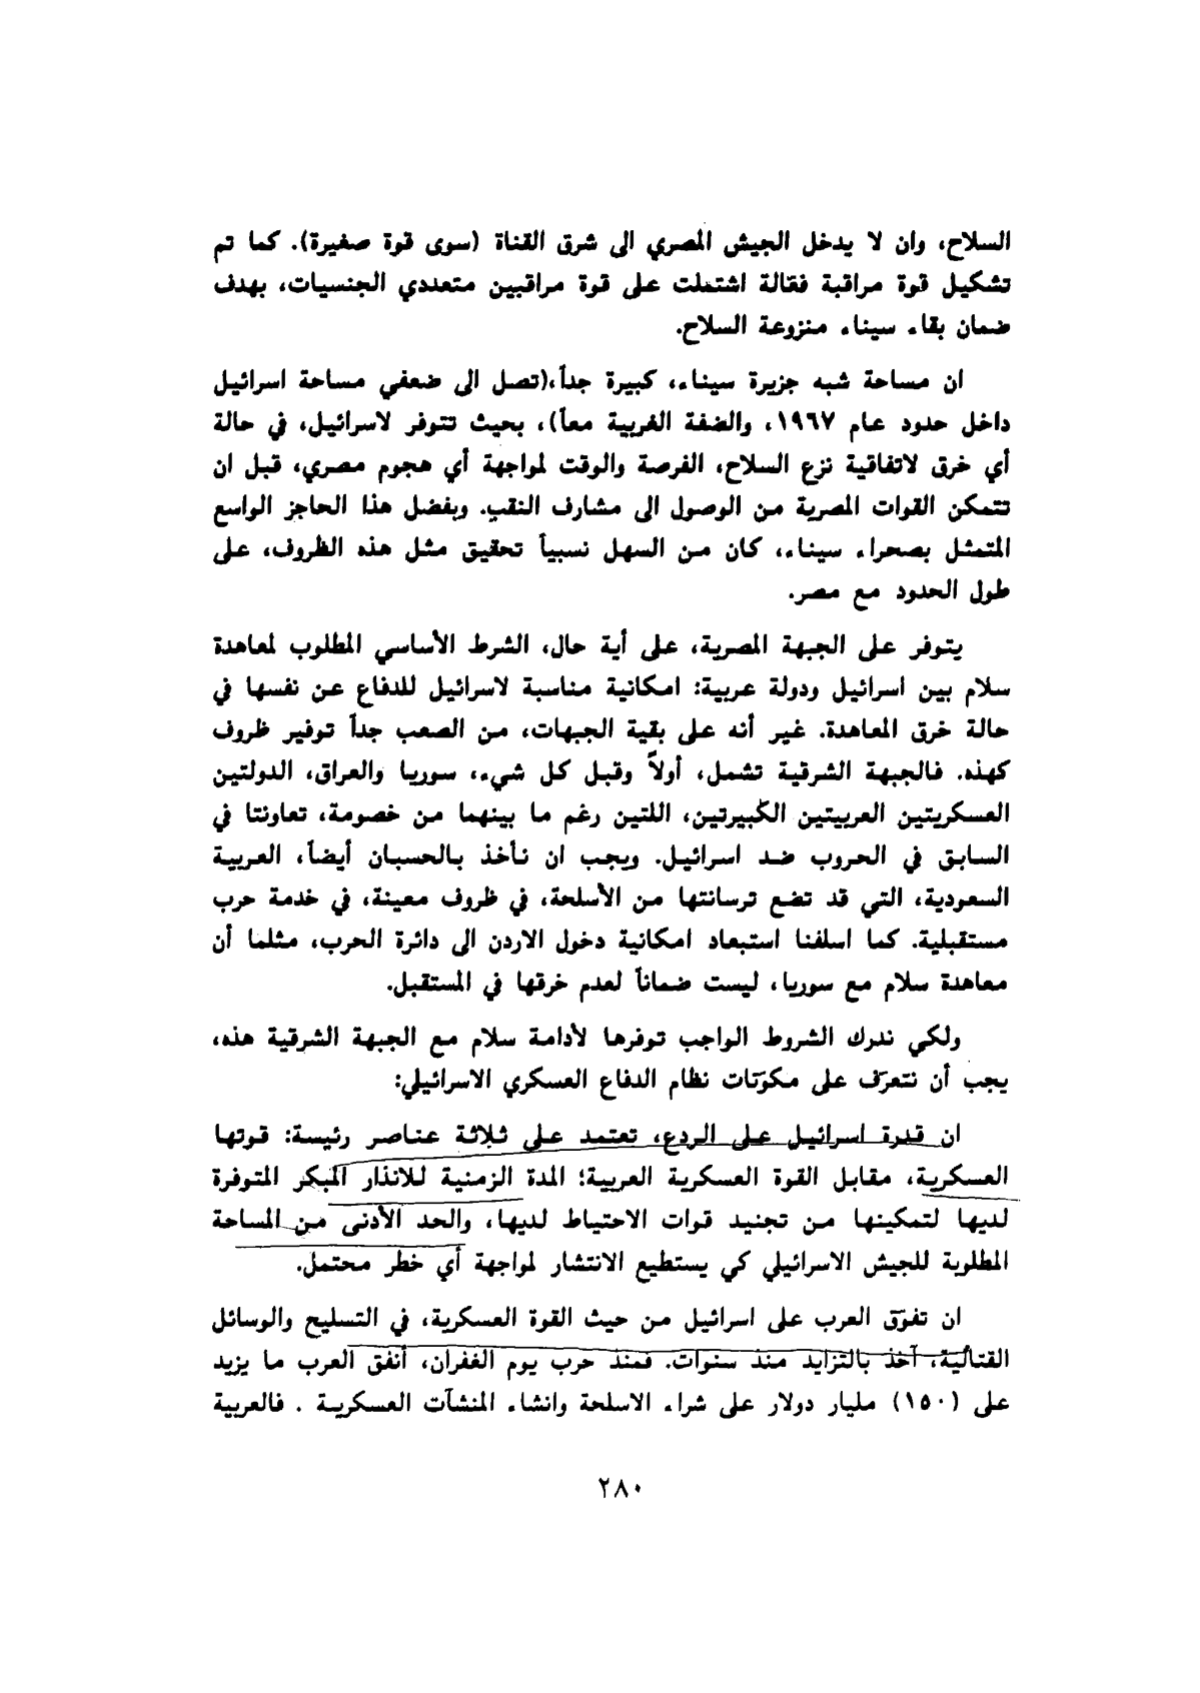 السلاح، وان لا يدخل الجيش المصري الى شرق القناة (سوى قوة صغيرة). كما تم
تشكيل قوة مراقبة فعّالة اشتملت على قوة مراقبين متعددي الجنسيات، بهدف
ضمان بقاء سيناء منزوعة السلاح.
ان مساحة شبه جزيرة سيناء، كبيرة جداً،(تصل الى ضعفي مساحة اسرائيل
داخل حدود عام ١٩٦٧، والضفة الغربية معاً)، بحيث تتوفر لاسرائيل، في حالة
أي خرق لاتفاقية نزع السلاح، الفرصة والوقت لمواجهة أي هجوم مصري، قبل ان
تتمكن القوات المصرية من الوصول الى مشارف النقب. وبفضل هذا الحاجز الواسع
المتمثل بصحراء سيناء، كان من السهل نسبياً تحقيق مثل هذه الظروف، على
طول الحدود مع مصر.
يتوفر على الجبهة المصرية، على أية حال، الشرط الأساسي المطلوب لمعاهدة
سلام بين اسرائيل ودولة عربية: امكانية مناسبة لاسرائيل للدفاع عن نفسها في
حالة خرق المعاهدة. غير أنه على بقية الجبهات، من الصعب جداً توفير ظروف
كهذه. فالجبهة الشرقية تشمل، أولاً وقبل كل شيء، سوريا والعراق، الدولتين
العسكريتين العربيتين الكبيرتين، اللتين رغم ما بينهما من خصومة، تعاونتا في
السابق في الحروب ضد اسرائيل. ويجب ان نأخذ بالحسبان أيضاً، العربية
السعودية، التي قد تضع ترسانتها من الأسلحة، في ظروف معينة، في خدمة حرب
مستقبلية. كما اسلفنا استبعاد امكانية دخول الاردن الى دائرة الحرب، مثلما أن
معاهدة سلام مع سوريا، ليست ضماناً لعدم خرقها في المستقبل.
ولكي ندرك الشروط الواجب توفرها لأدامة سلام مع الجبهة الشرقية هذه،
يجب أن نتعرّف على مكوّنات نظام الدفاع العسكري الاسرائيلي:
ان قدرة اسرائيل على الردع، تعتمد على ثلاثة عناصر رئيسة: قوتها
العسكرية، مقابل القوة العسكرية العربية؛ المدة الزمنية للانذار المبكر المتوفرة
لديها لتمكينها من تجنيد قوات الاحتياط لديها، والحد الأدنى من المساحة
المطلوبة للجيش الاسرائيلي كي يستطيع الانتشار لمواجهة أي خطر محتمل.
ان تفوّق العرب على اسرائيل من حيث القوة العسكرية، في التسليح والوسائل
القتالية، آخذ بالتزايد منذ سنوات. فمنذ حرب يوم الغفران، أنفق العرب ما يزيد
على (١٥٠) مليار دولار على شراء الاسلحة وانشاء المنشآت العسكرية . فالعربية
٢٨٠